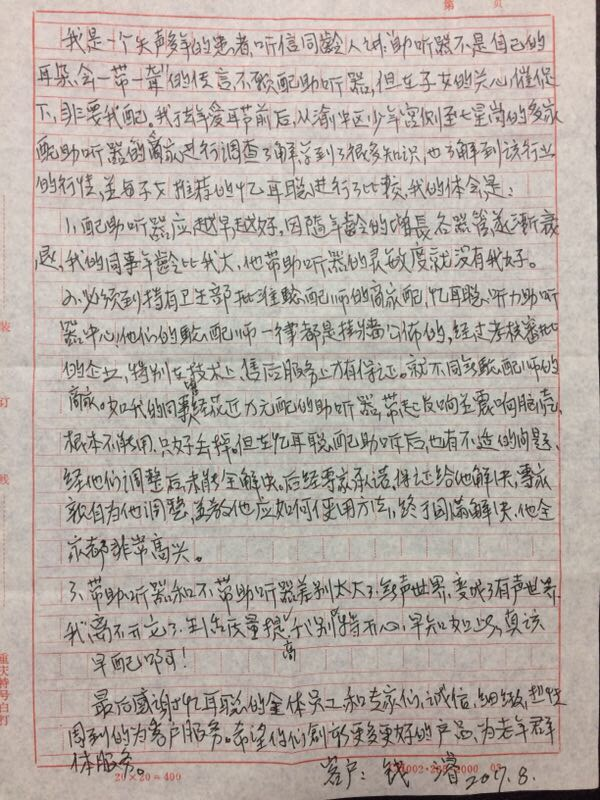 第 页
我是一个失声多年的患者,听信同龄人讲:助听器不是自己的
耳朵,会一带一聋的传言,不愿配助听器,但在子女的关心催促
下,非要我配。我于去年爱耳节前后,从渝中区少年宫侧至七星岗的多家
配助听器的商家进行调查了解学到了很多知识,也了解到该行业
的行情,并与子女推荐的忆耳聪进行了比较,我的体会是:
1.配助听器应越早越好,因随年龄的增長各器管逐渐衰
退,我的同事年龄比我大,他带助听器的灵敏度就没有我好。
2.必须到持有卫生部批准验配师的商家配,忆耳聪、听力助听
器中心,他们的验配师一律都是挂牆公佈的,经过考核審批
的企业,特别在技术上、售后服务上才有保证。就不同無验配师的
商家。如我的同事经花近万元配的助听器,带起反响至震响脑壳,
根本不能用,只好丢掉。但在忆耳聪、配助听后,也有不适的问题、
经他们调整后,未能全解决。后经專家承诺,保证给他解决,專家
親自为他调整,并教他应如何使用方法,终于圆满解决,他全
家都非常高兴。
3.带助听器和不带助听器差别太大了,無声世界,变成了有声世界,
我离不开它了。生活质量提高,心别特开心,早知如此,真该
早配啊!
最后感谢忆耳聪的全体员工和专家们,诚信、细緻,热忱
周到的为客户服务。希望你们創新更多更好的产品,为老年群
体服务。
客户:钱 濬 2017.8.
20×20=400
装
订
线
重庆特号白打